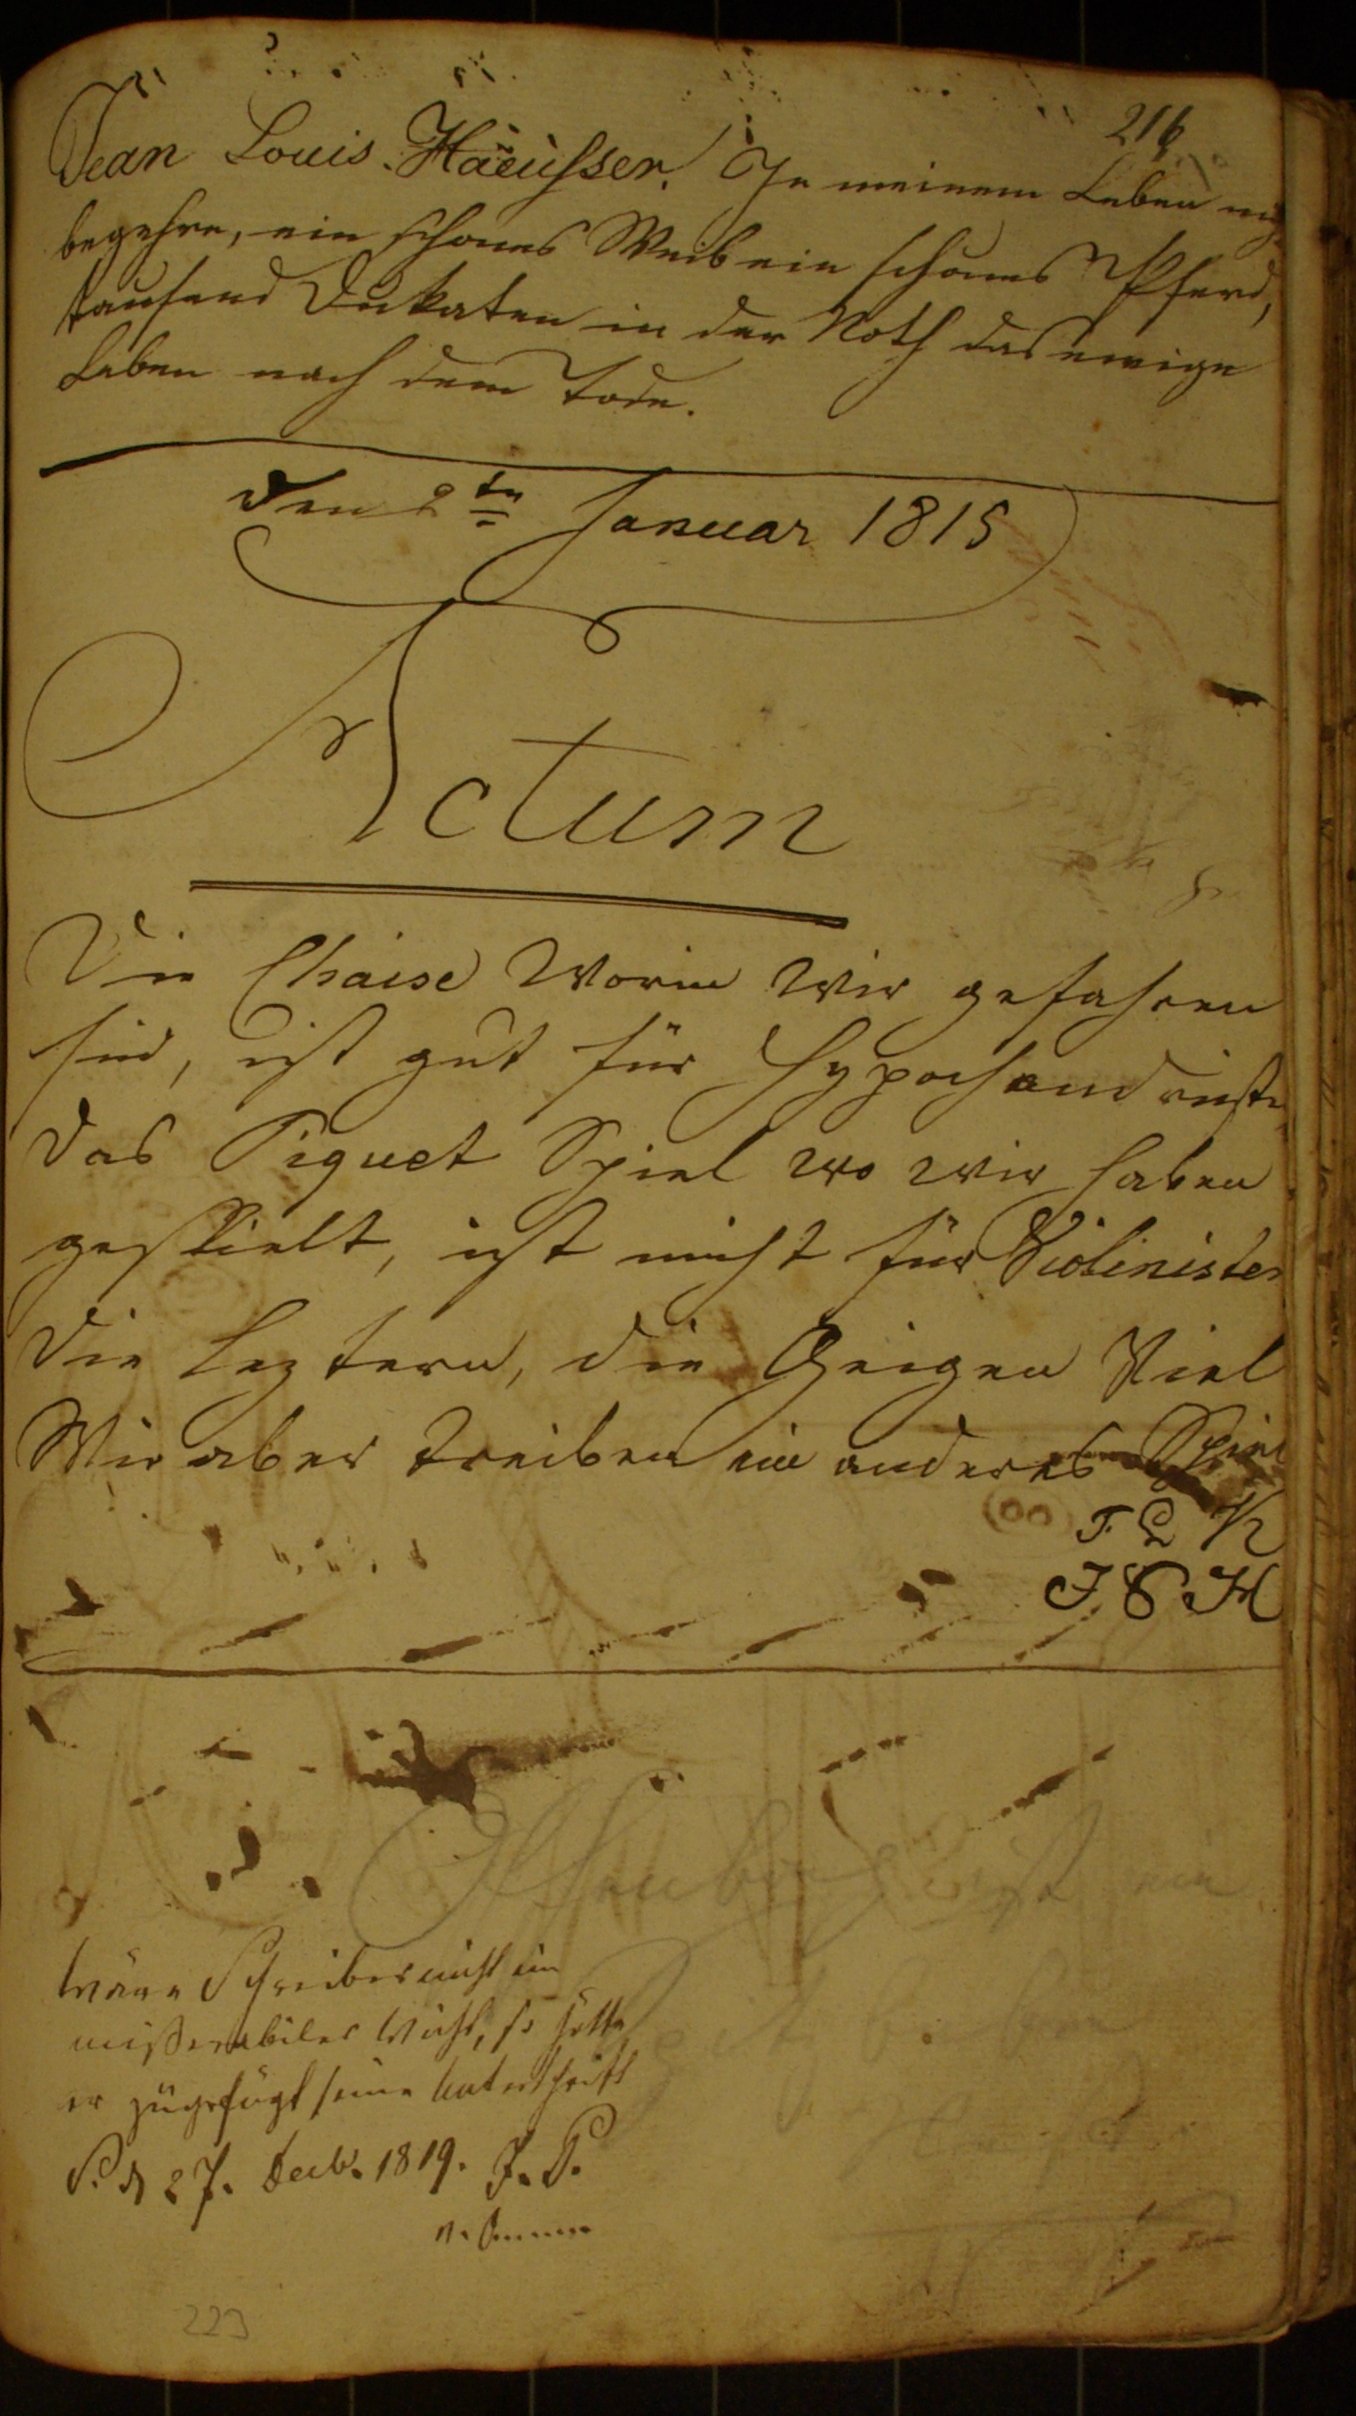 216
Jean Louis Haeusser. In meinem Leben mich
begehre, ein schönes Weib ein schönes Pferd,
tausend Dukaten in der Noth das ewige
Leben nach dem Tode.
Den 2ten Januar 1815
Actum
Die Chaise Worin Wir gefahren
sind, ist gut für Hypochondristen
Das Piquet Spiel wo wir haben
gespielt, ist nicht für Violinisten
Die Leztern, die Geigen Viel
Wir aber treiben ein anderes Spiel
J. L
J H
ist ein
Wäre Schreiber nicht ein
mißerabler Wicht, so hätte
er zugefügt seine Unterschrift
S. d 27. Decb. 1819. J. P.
223